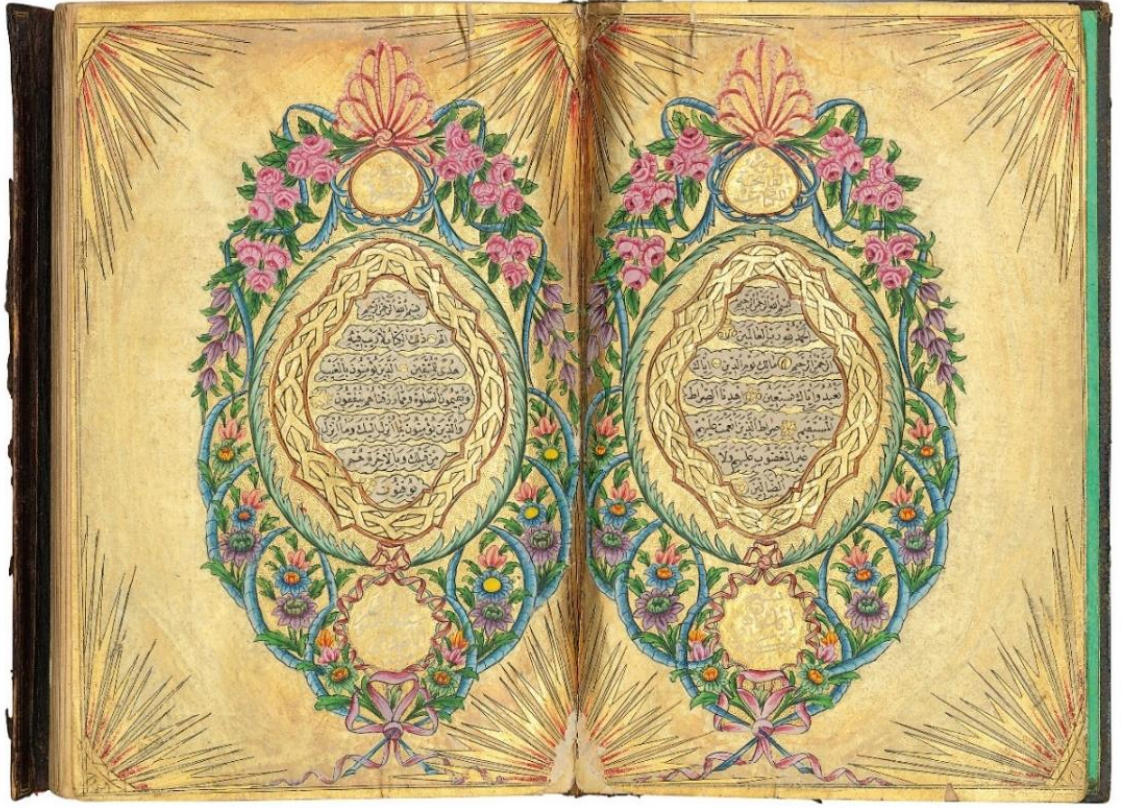 بسم الله الرحمن الرحيم
الحمد لله رب العالمين
الرحمن الرحيم مالك يوم الدين اياك
نعبد واياك نستعين اهدنا الصراط
المستقيم صراط الذين انعمت عليهم
غير المغضوب عليهم ولا
الضالين
بسم الله الرحمن الرحيم
الم ذلك الكتاب لا ريب فيه
هدى للمتقين الذين يؤمنون بالغيب
ويقيمون الصلوة ومما رزقناهم ينفقون
والذين يؤمنون بما انزل اليك وما انزل
من قبلك وبالاخرة هم
يوقنون